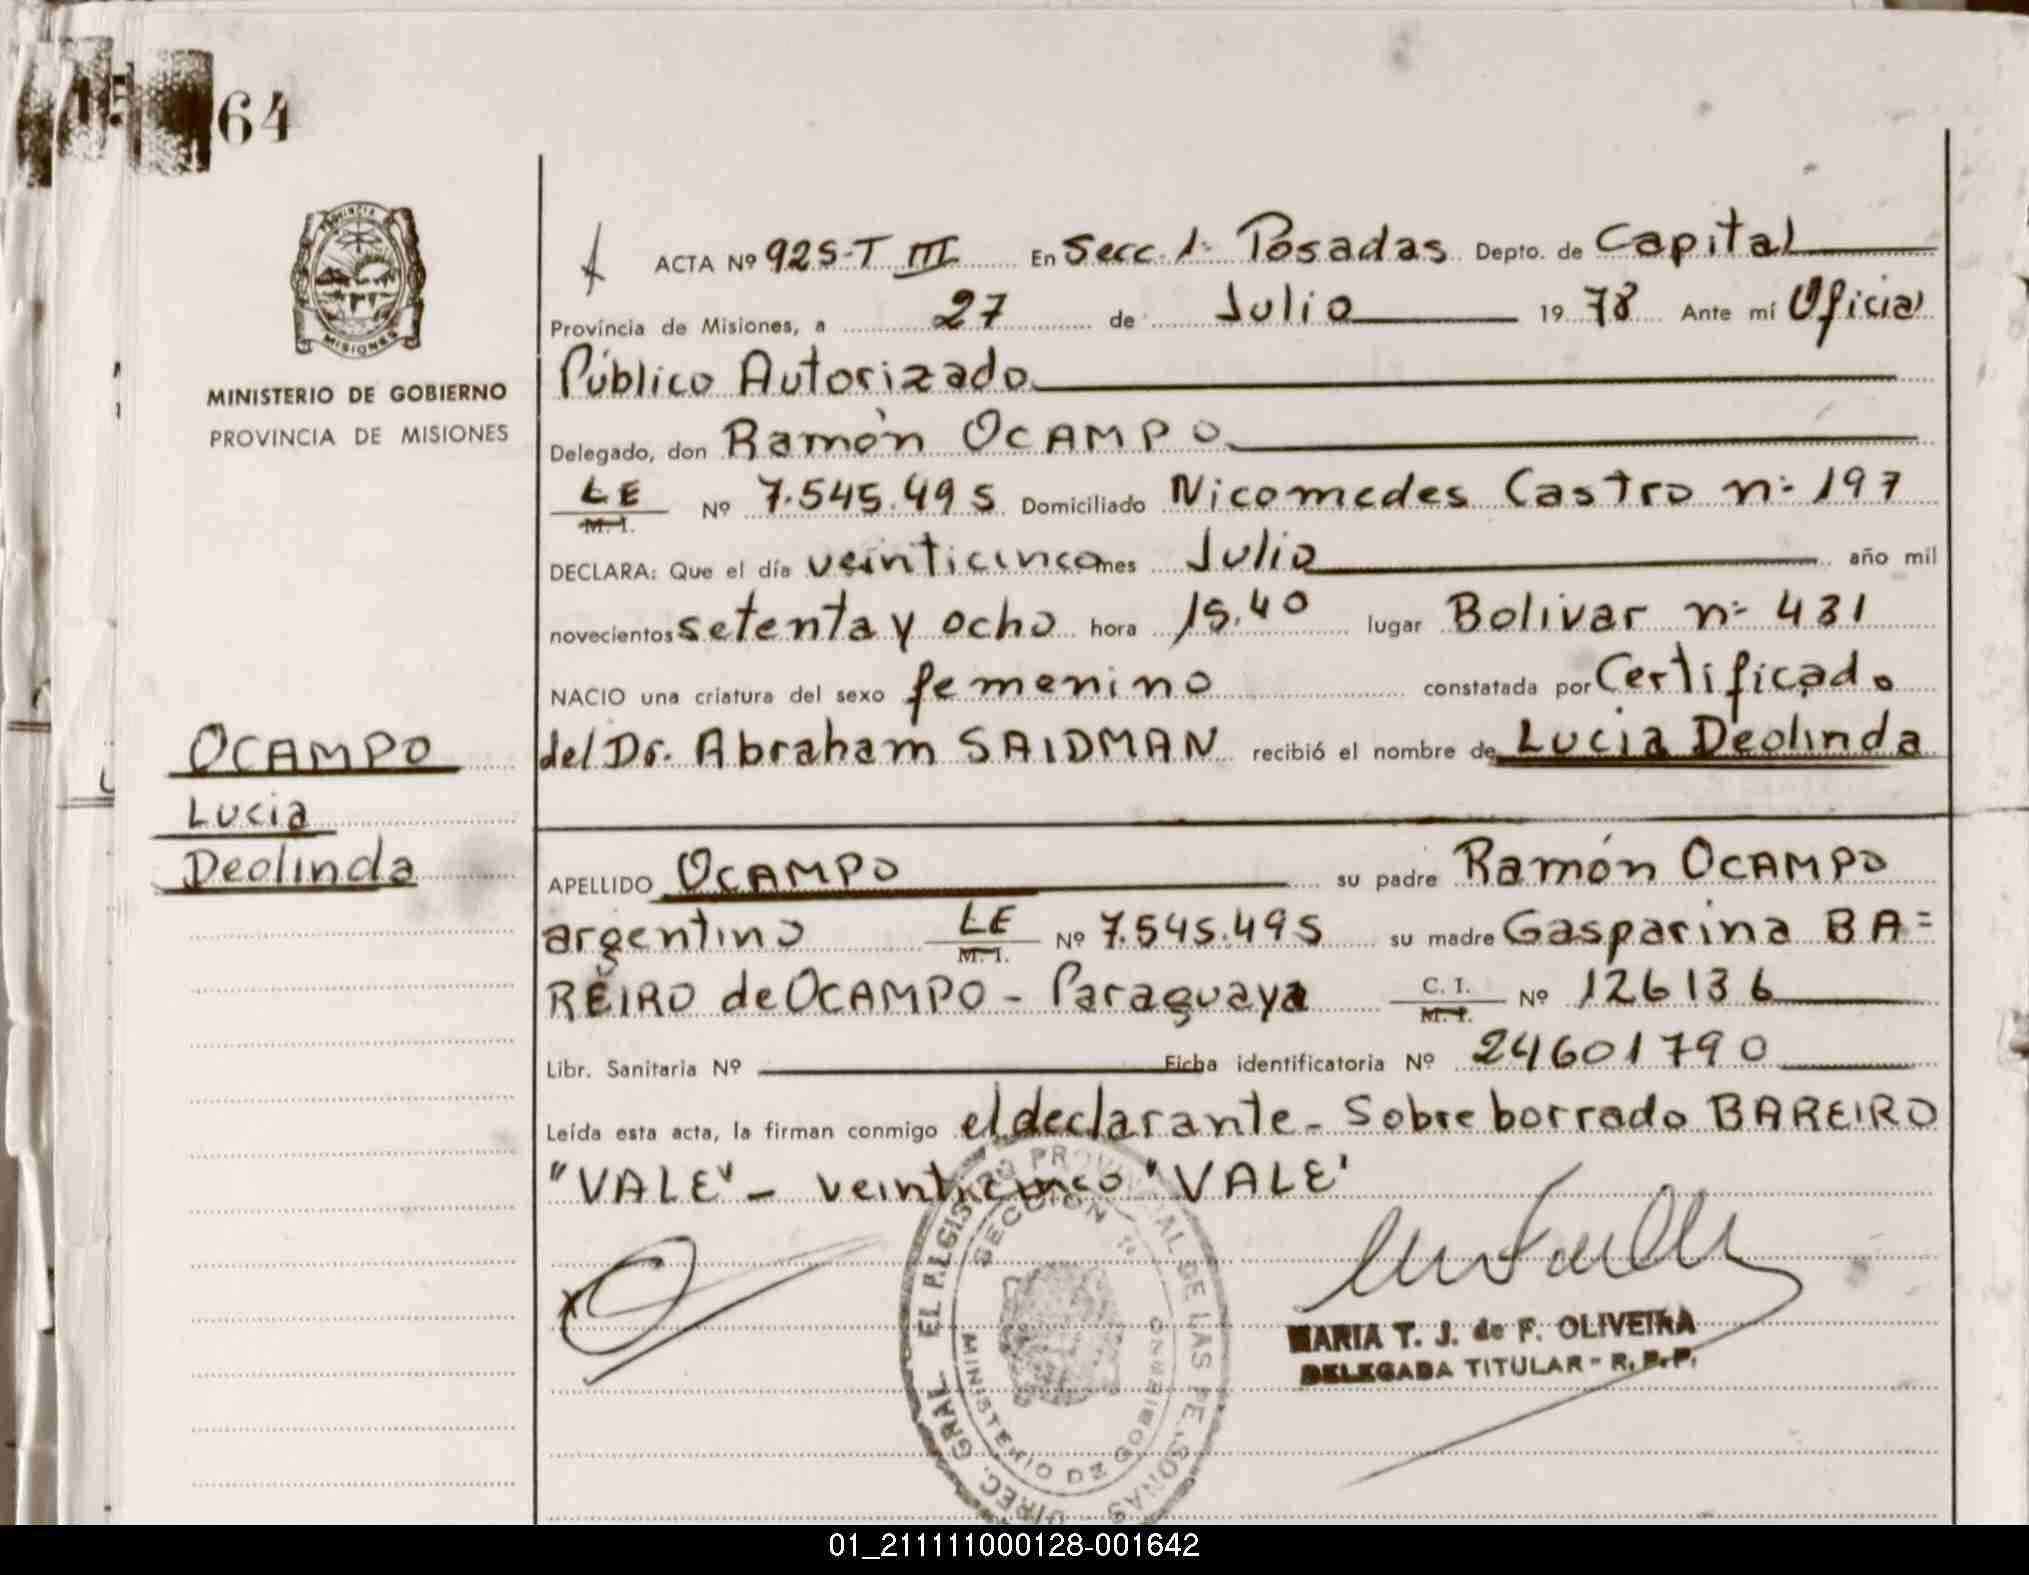 64
PROVINCIA
MISIONES
MINISTERIO DE GOBIERNO
PROVINCIA DE MISIONES
OCAMPO
Lucia
Deolinda
ACTA Nº 925-T III En Secc. 1ª Posadas Depto. de Capital
Provincia de Misiones, a 27 de Julio 1978 Ante mí Oficial
Público Autorizado
Delegado, don Ramón OCAMPO
LE M.I. Nº 7.545.495 Domiciliado Nicomedes Castro nº 197
DECLARA: Que el día veinticinco mes Julio año mil
novecientos setenta y ocho hora 15.40 lugar Bolivar nº 431
NACIO una criatura del sexo femenino constatada por Certificado
del Dr. Abraham SAIDMAN recibió el nombre de Lucia Deolinda
APELLIDO OCAMPO su padre Ramón OCAMPO
argentino LE M.I. Nº 7.545.495 su madre Gasparina BA=
REIRO de OCAMPO - Paraguaya C.I. M.I. Nº 126136
Libr. Sanitaria Nº Ficha identificatoria Nº 24601790
Leída esta acta, la firman conmigo el declarante - Sobre borrado BAREIRO
"VALE" - veinticinco "VALE"
SECCION 1ª
MINISTERIO DE GOBIERNO
MARIA T. J. de F. OLIVEIRA
DELEGADA TITULAR - R.P.P.
01_211111000128-001642